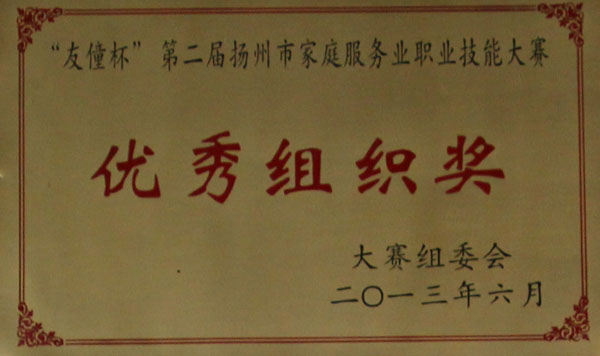 “友僮杯”第二届扬州市家庭服务业职业技能大赛
优秀组织奖
大赛组委会
二〇一三年六月